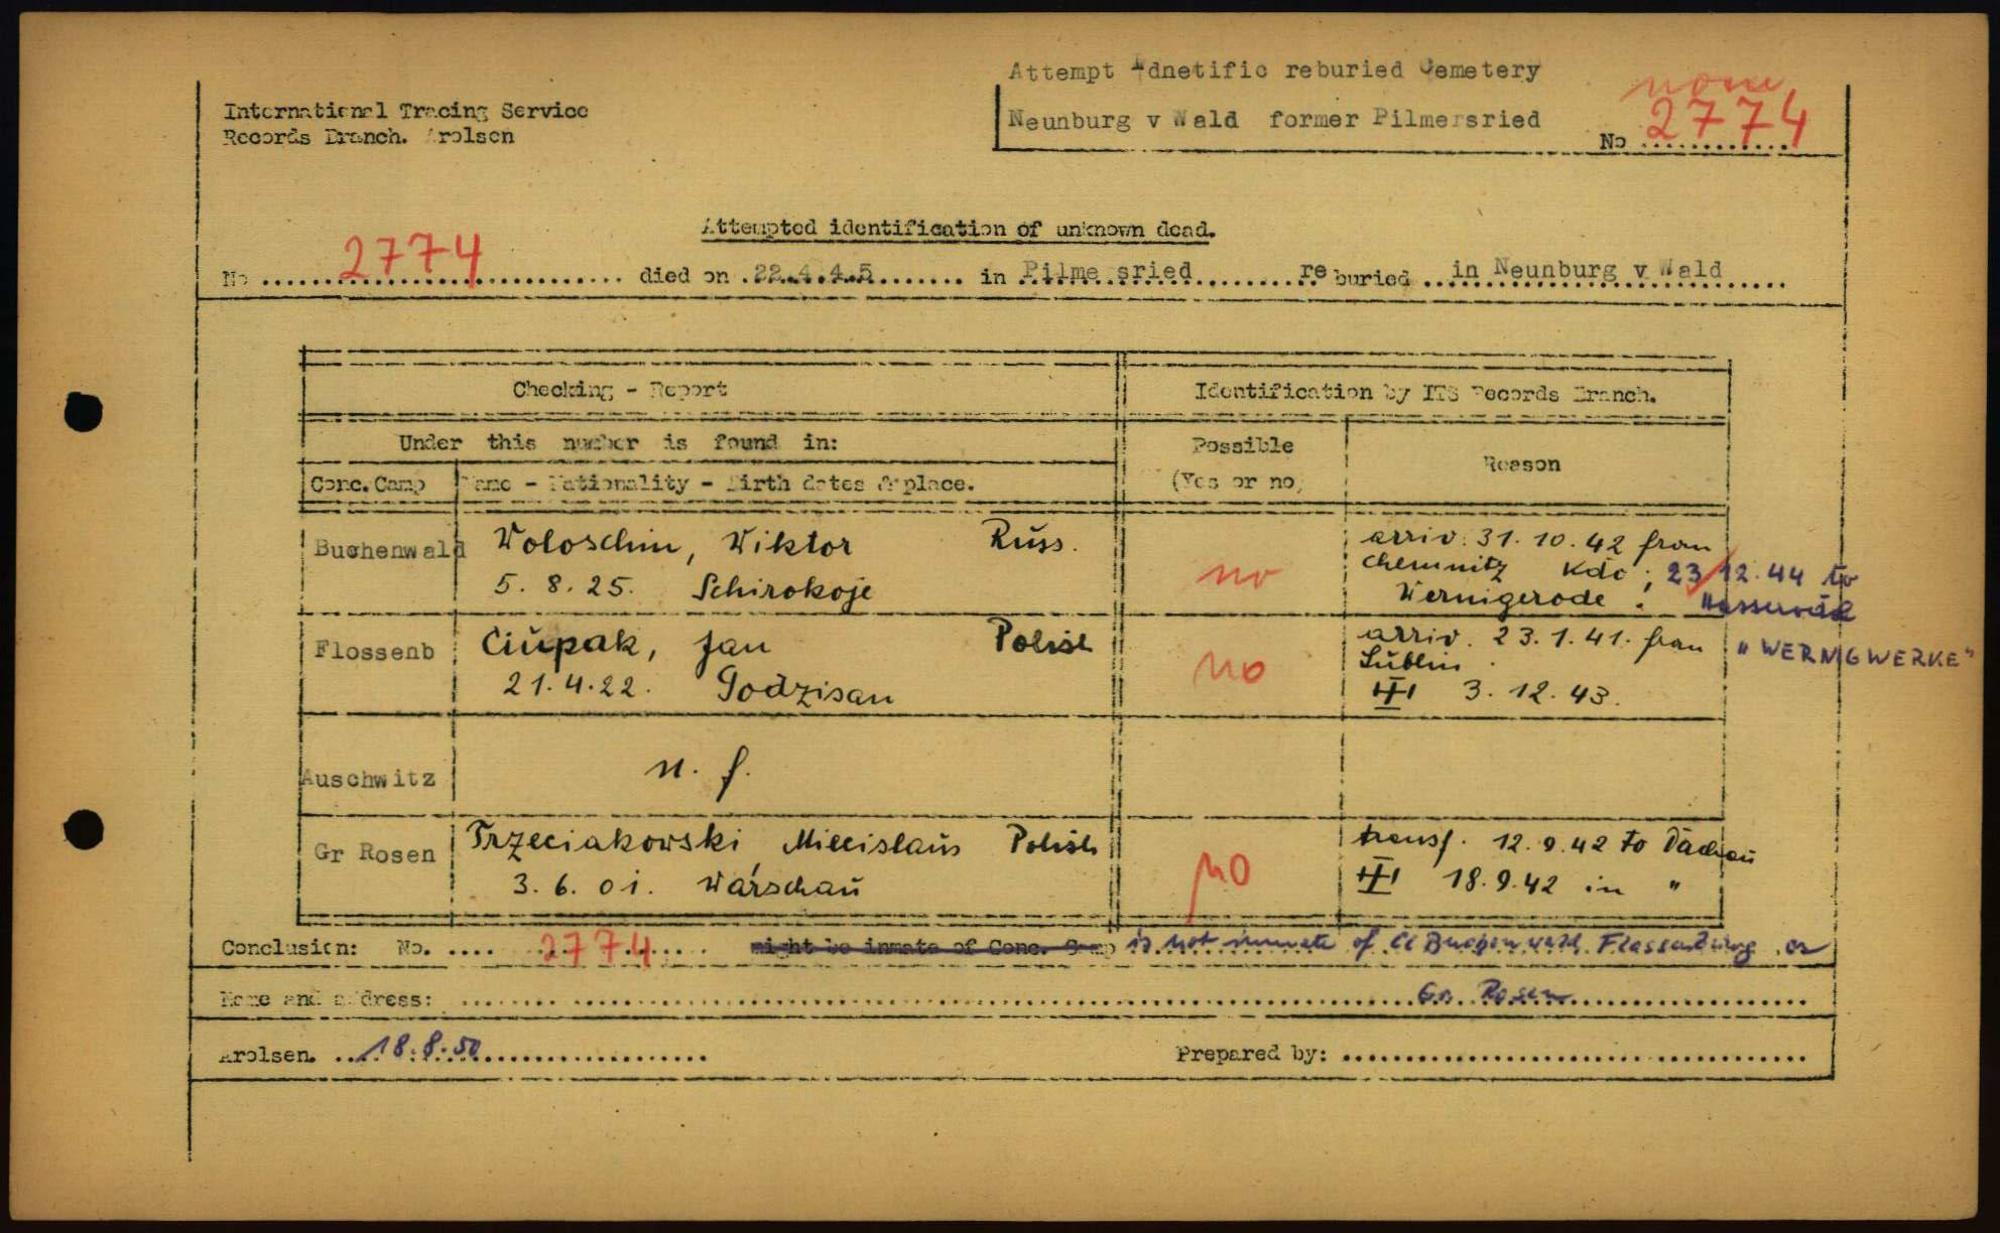 Attempt Idnetific reburied Cemetery
none
International Tracing Service
Records Branch. Arolsen
Neunburg v Wald former Pilmersried
No 2774
Attempted identification of unknown dead.
No 2774 died on 22.4.45 in Pilmersried reburied in Neunburg v Wald
Checking - Report
Identification by ITS Records Branch.
Under this number is found in:
Possible
(Yes or no)
Reason
Conc. Camp
Name - Nationality - Birth dates & place.
Buchenwald
Woloschin, Wiktor Russ.
5. 8. 25. Schirokoje
no
arriv. 31. 10. 42 from
Chemnitz Kdo ; 23.12.44 to
Wernigerode !
Flossenb
Ciupak, Jan Polish
21. 4. 22. Godzisan
no
arriv. 23. 1. 41. from
Lublin.
3. 12. 43.
"WERNIGWERKE"
Auschwitz
n. f.
Gr Rosen
Trzeciakowski, Miecislaus Polish
3. 6. 01. Warschau
no
transf. 12. 9. 42 to Dachau
18. 9. 42 in "
Conclusion: No. 2774 might be inmate of Conc. Camp is not inmate of CC Buchenwald, Flossenbürg or
Name and address: Gr. Rosen
Arolsen. 18. 8. 50
Prepared by: